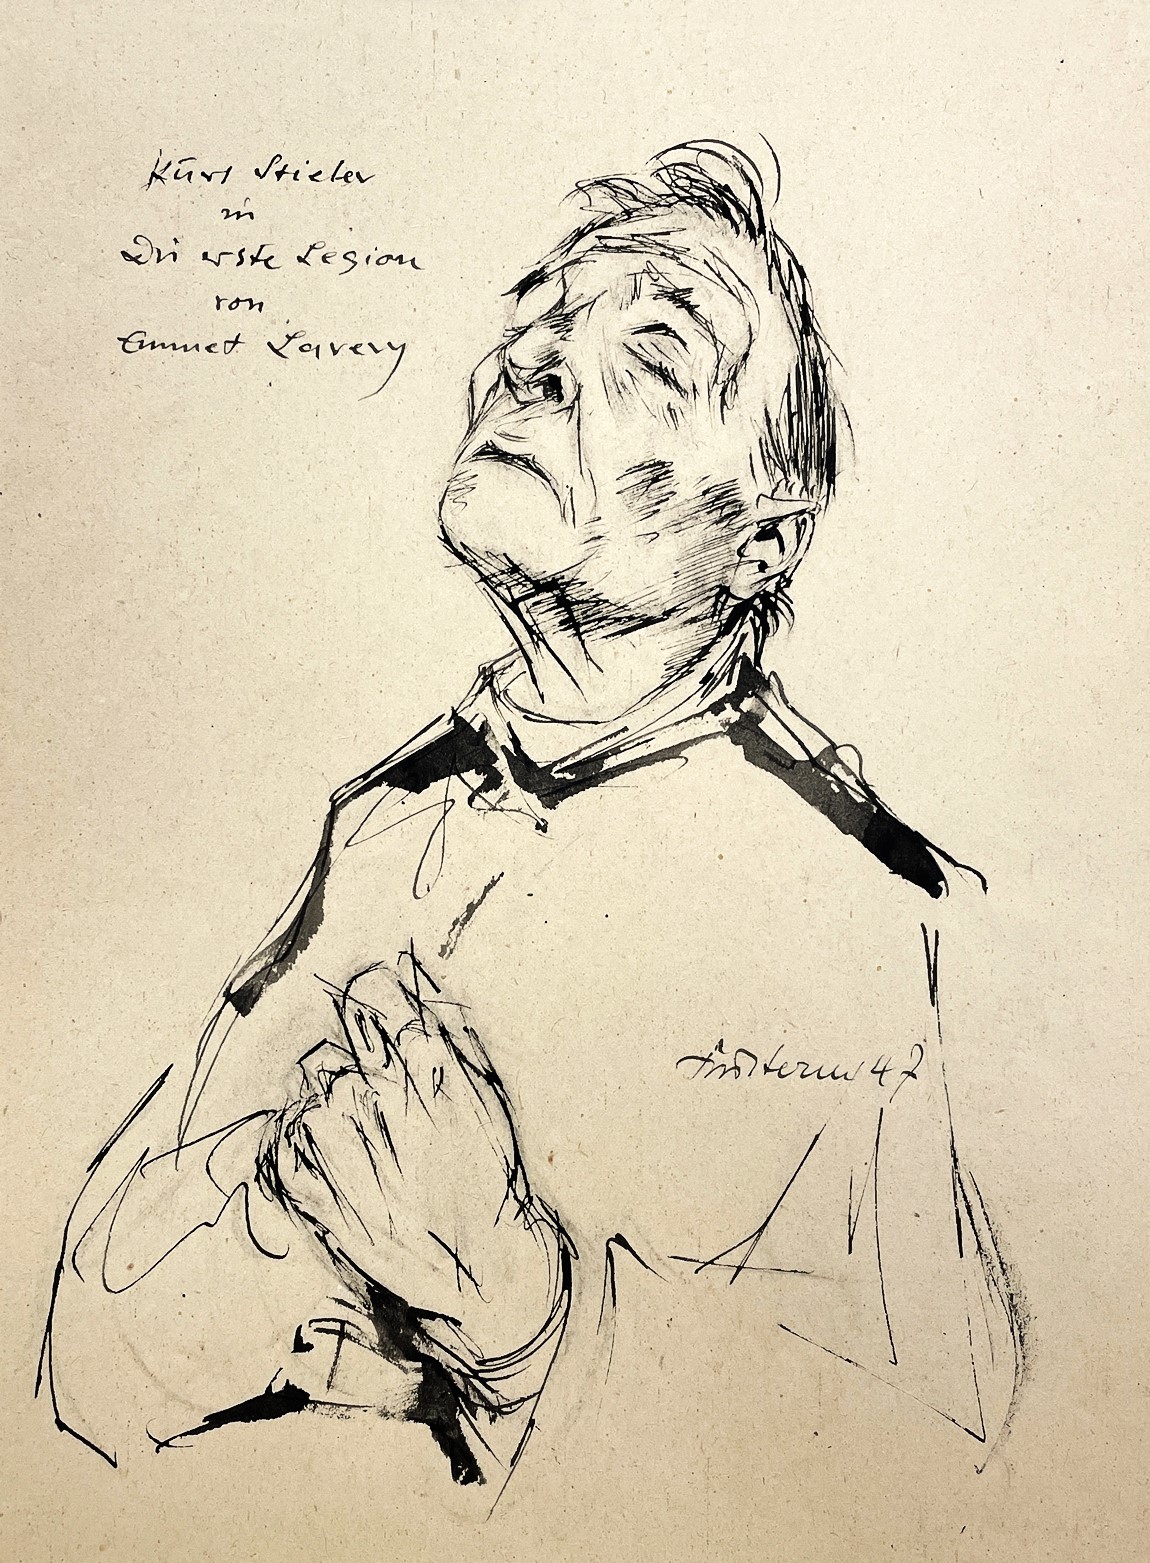 Kurt Stieler
in
Die erste Legion
von
Emmet Lavery
47